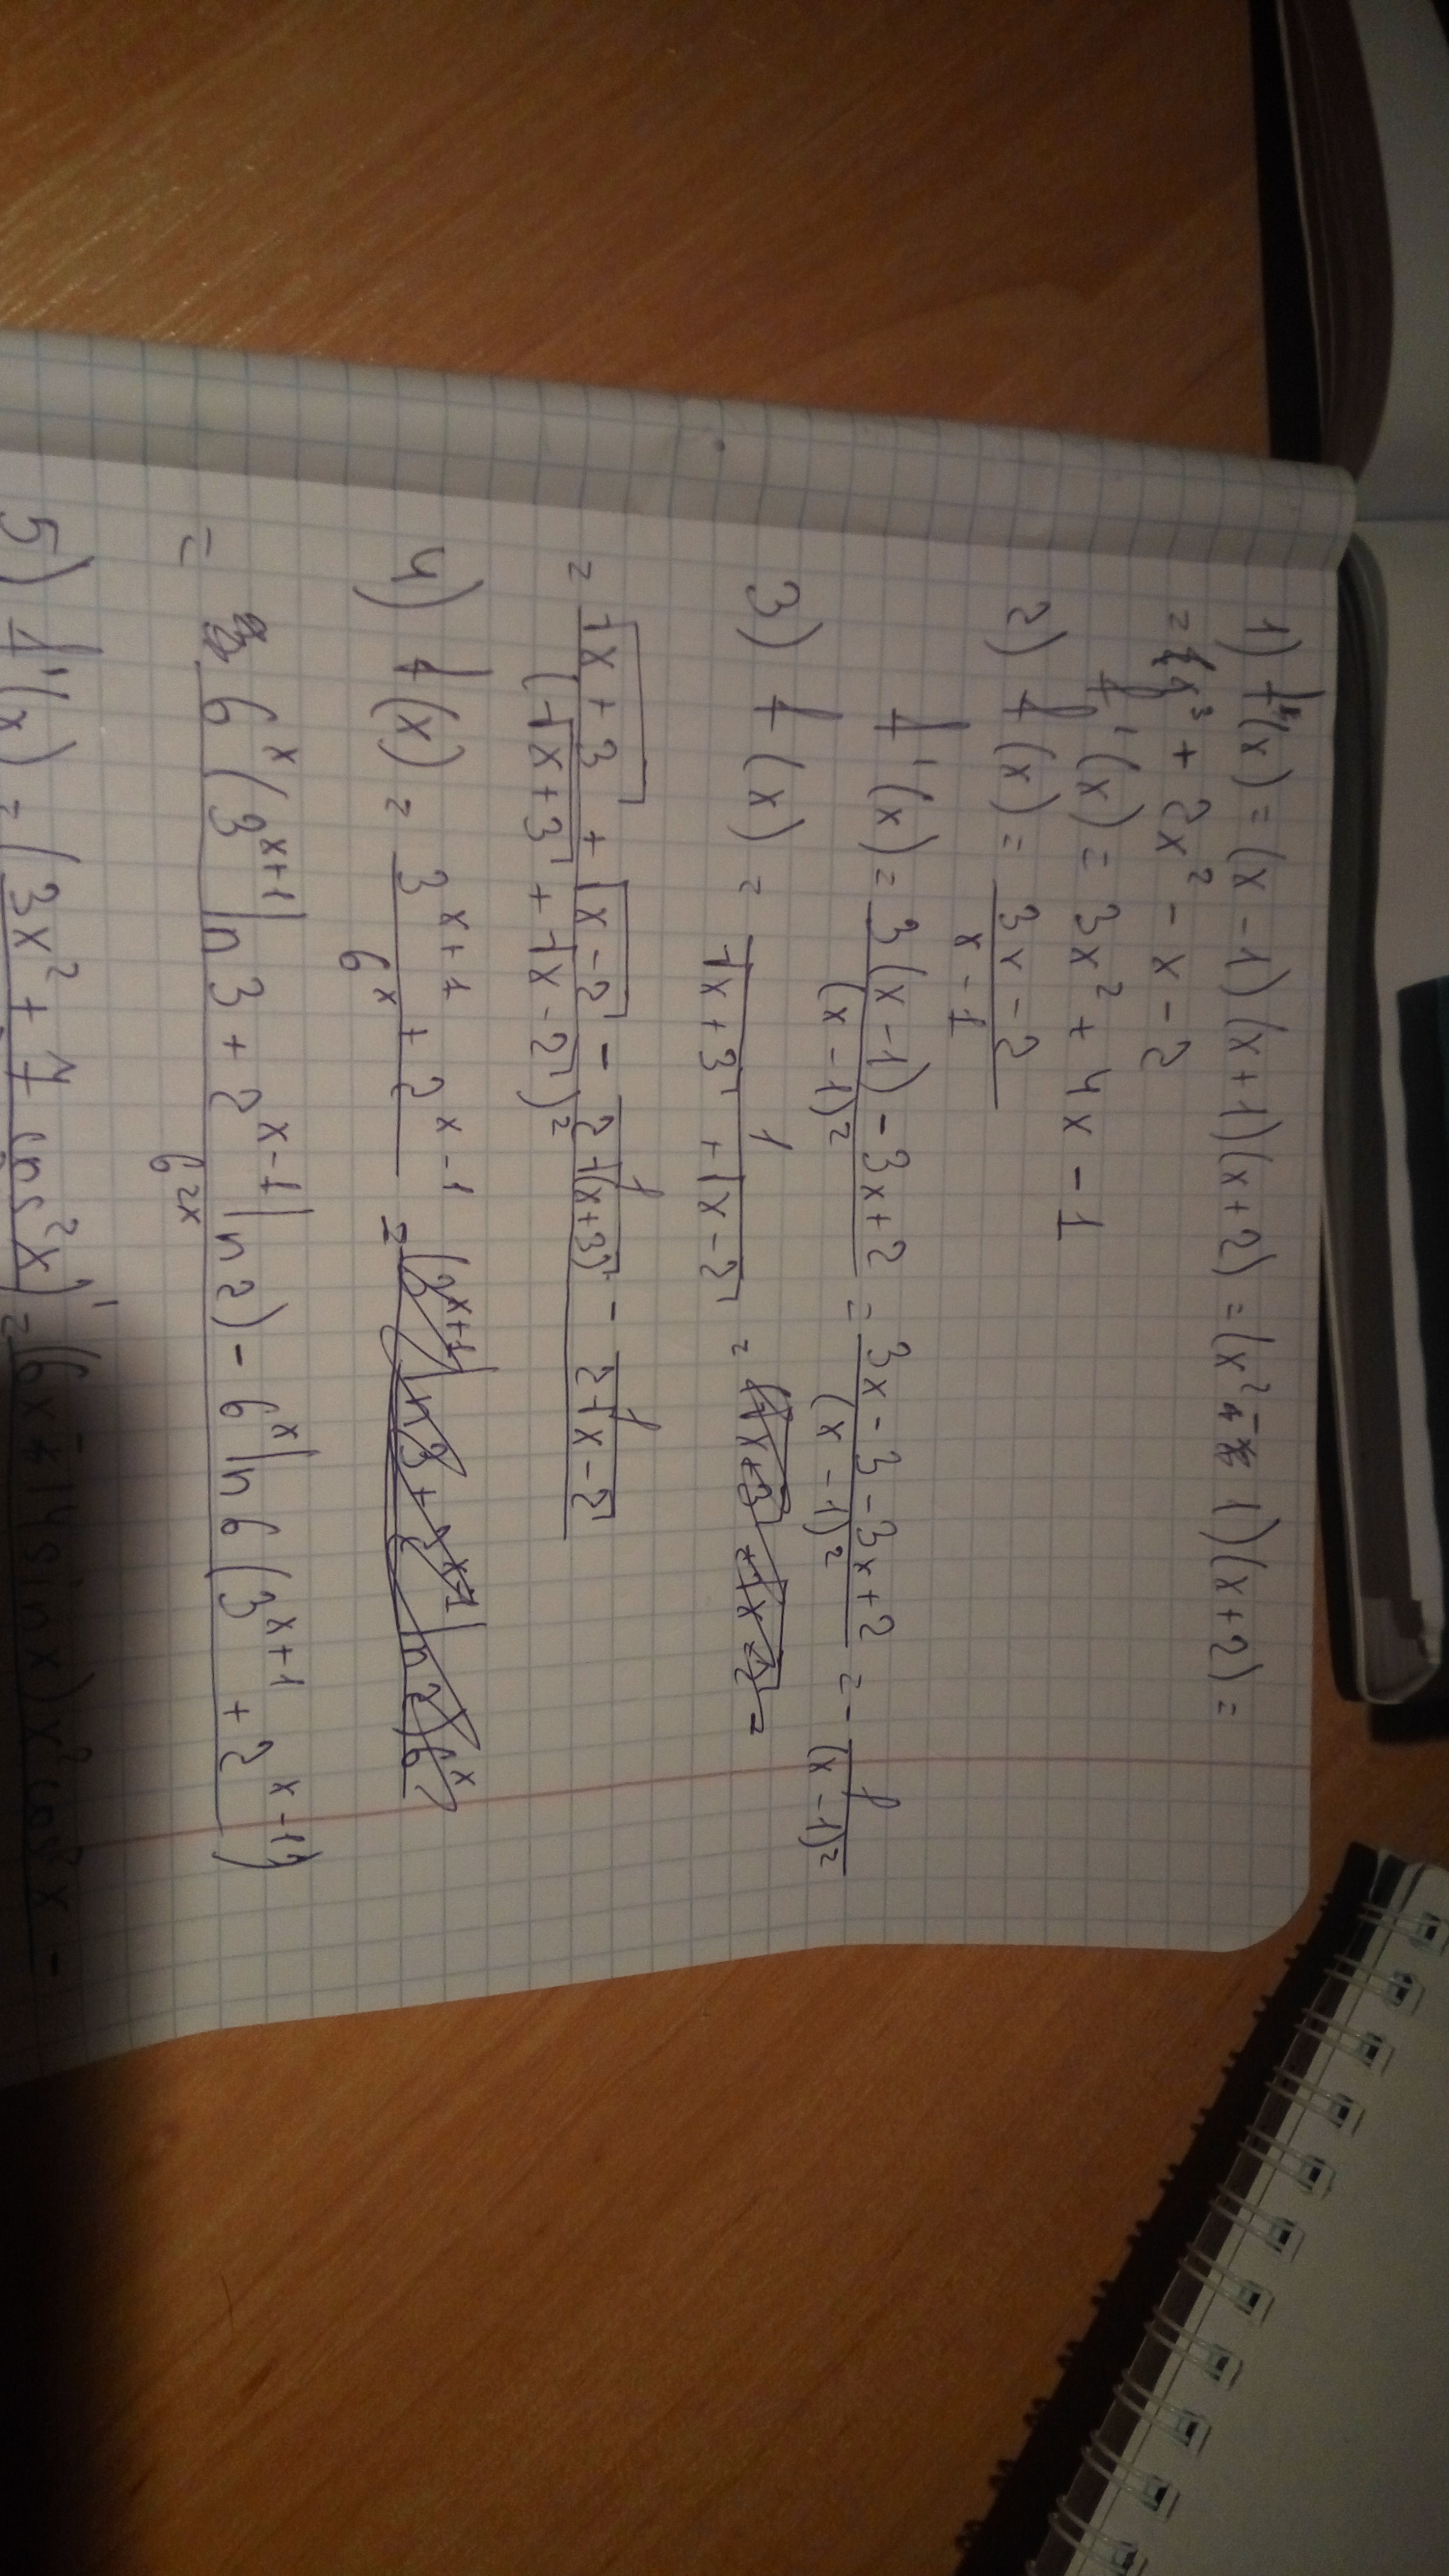 1) f(x) = (x - 1)(x + 1)(x + 2) = (x² - 1)(x + 2) =
= x³ + 2x² - x - 2
f'(x) = 3x² + 4x - 1
2) f(x) = (3x - 2)/(x - 1)
f'(x) = (3(x - 1) - 3x + 2)/(x - 1)² = (3x - 3 - 3x + 2)/(x - 1)² = - 1/(x - 1)²
3) f(x) = 1/(√(x + 3) + √(x - 2)) = =
= (√(x + 3) + √(x - 2) - 1/(2√(x + 3)) - 1/(2√(x - 2)))/(√(x + 3) + √(x - 2))²
4) f(x) = (3^(x + 1) + 2^(x - 1))/6^x =
= (6^x(3^(x+1) ln 3 + 2^(x-1) ln 2) - 6^x ln 6 (3^(x+1) + 2^(x-1)))/6^(2x)
5) f'(x) = (3x² + 4 cos²x)' =